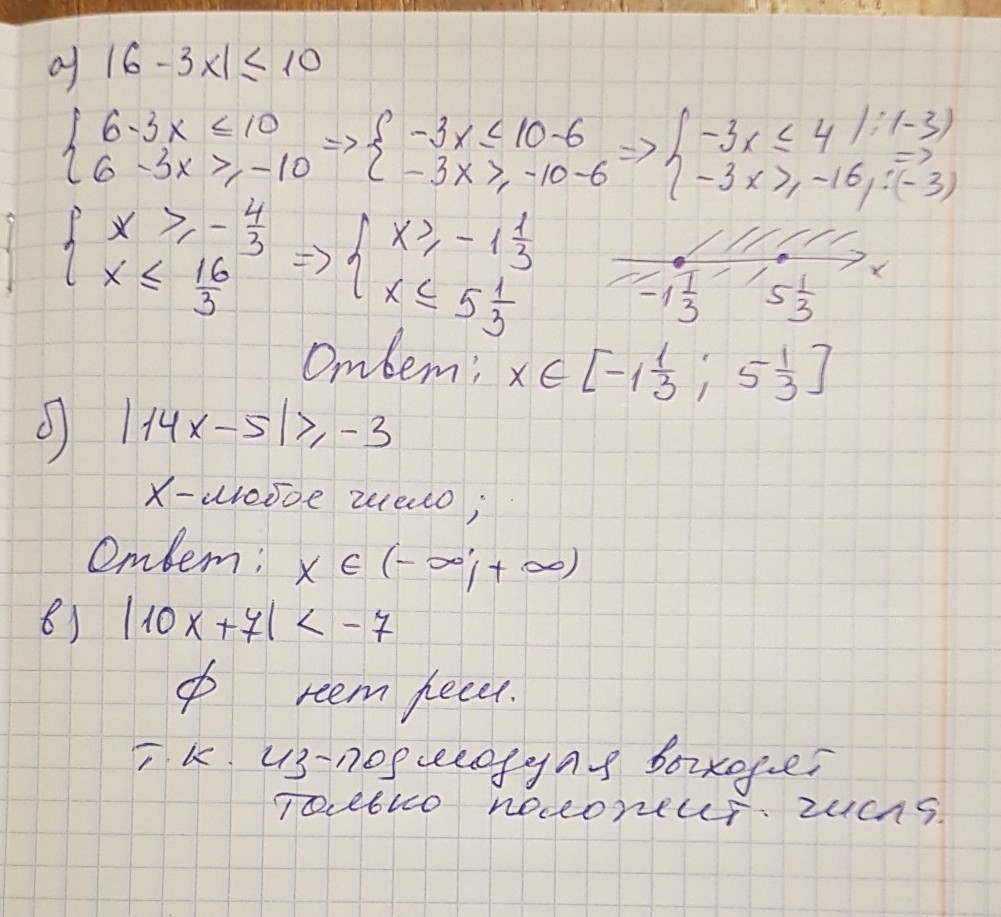 а) |6 - 3x| ≤ 10
{ 6-3x ≤ 10 => { -3x ≤ 10-6 => { -3x ≤ 4 |:(-3)
{ 6-3x ≥ -10 { -3x ≥ -10-6 { -3x ≥ -16, :(-3) =>
{ x ≥ -4/3 => { x ≥ -1 1/3
{ x ≤ 16/3 { x ≤ 5 1/3
-1 1/3 5 1/3 x
Ответ: x ∈ [-1 1/3 ; 5 1/3]
б) |14x-5| ≥ -3
x-любое число;
Ответ: x ∈ (-∞; +∞)
в) |10x+7| < -7
ф нет реш.
т.к. из-под модуля выходят
только положит. числа.